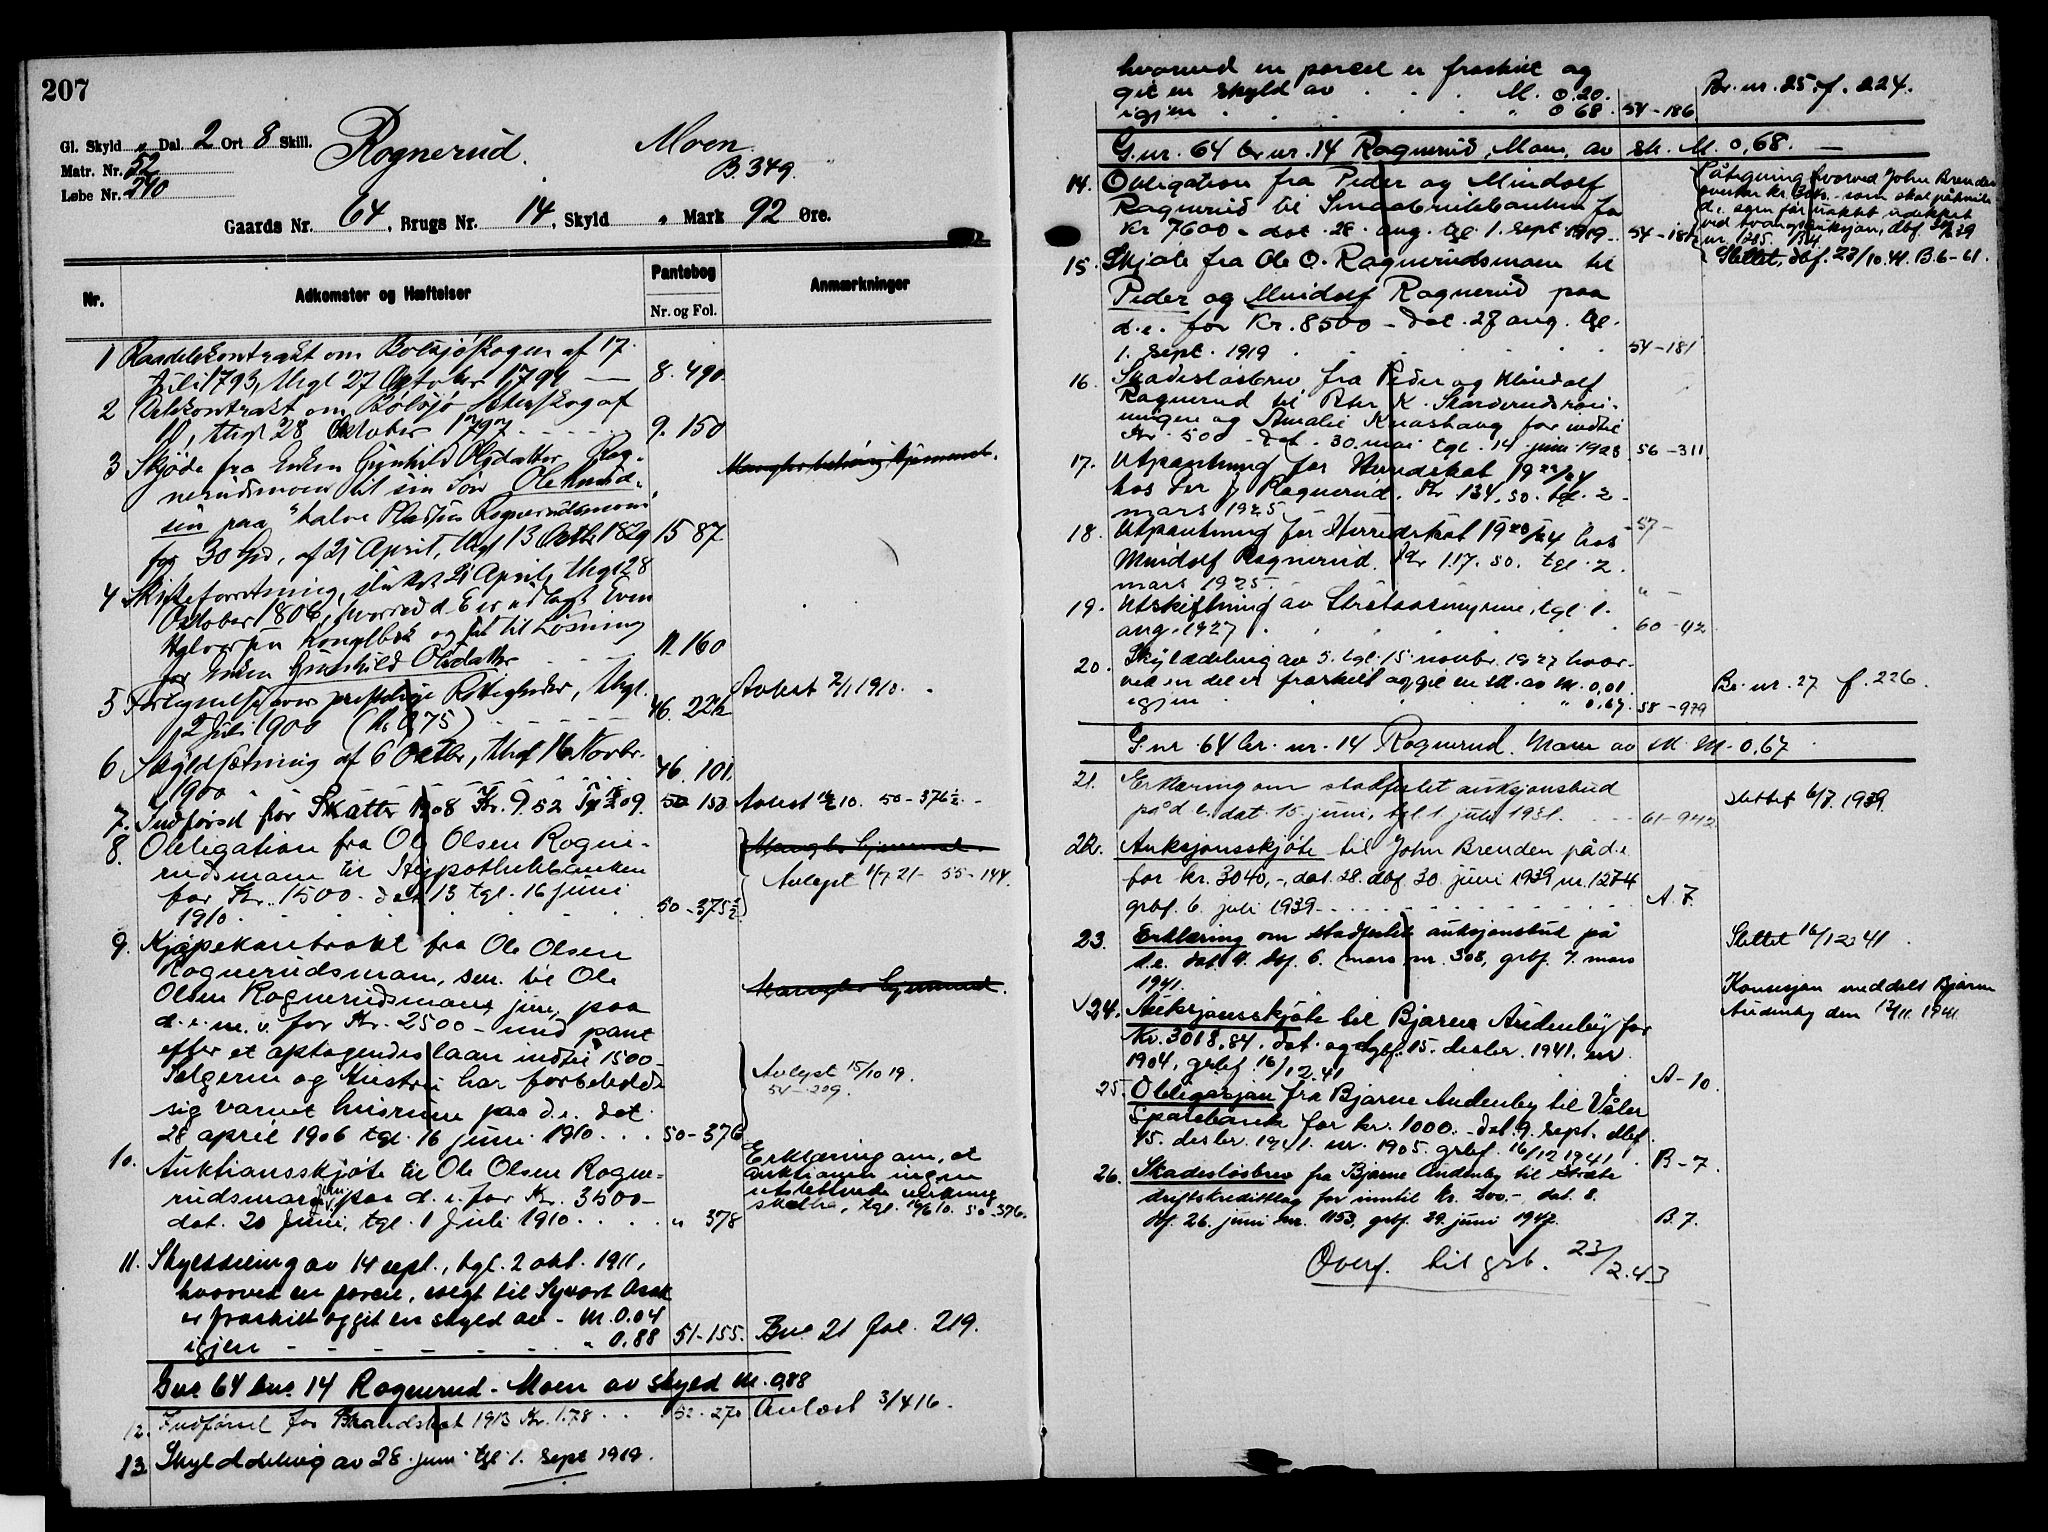 207
Gl. Skyld " Dal. 2 Ort 8 Skill.
Matr. Nr. 52
Løbe Nr. 240
Rognerud.
Moen
B. 349.
Gaards Nr. 64, Brugs Nr. 14, Skyld " Mark 92 Øre.
Nr.
Adkomster og Hæftelser
Pantebog
Nr. og Fol.
Anmærkninger
1 kontrakt om af 17.
Juli 1793, thgl 27 Oktober 1794 8. 490.
2 Delekontrakt om af
10, thgl 28 Oktober 1797 9. 150
3 Skjøde fra Enken Gunhild Olsdatter Rog-
nerudsmoen til sin Søn Ole Knud-
sen paa halve Pladsen Rognerudsmoen
for 30 Spd, af 21 April, thgl 13 Octb 1829 15 87
Mangler behørig hjemmel.
4 Skifteforretning, sluttet 21 April, thgl 28
October 1806, hvorved d. E er udlagt Even
Halvorsen Kongelbek og sat til Løsning
for Enken Gunhild Olsdatter 11. 160
5 Forlignelse over præstelige Rettigheder, thgl.
2 Juli 1900 (Kr 0,75) 46. 222
Avlest 2/1 1910.
6 Skyldsætning af 6 Octbr, thgl 16 Novbr.
1900 46. 101.
7. Indførsel for Skatter 1908 Kr. 9.52 50 150
Avlest 50-376½.
8. Obligation fra Ole Olsen Rogne-
rudsmoen til Hypothekbanken
for Kr. 1500. dat 13 tgl. 16 juni
1910. 50-375½
Mangler hjemmel.
Avlyst 1/7 21 - 55-144.
9. Kjøpekontrakt fra Ole Olsen
Rognerudsmoen, sen. til Ole
Olsen Rognerudsmoen, jun, paa
d.e. m. v. for Kr. 2500 - med pant
efter et optagendes laan indtil 1500-
Sælgeren og Hustru har forbeholdt
sig varmet husrum paa d.e. dat
28 april 1906 tgl. 16 juni 1910. 50-376
Mangler hjemmel.
Avlyst 15/10 19.
54-209.
10. Auktionsskjøte til Ole Olsen Rogne-
rudsmoen jun. paa d. e. for Kr. 3500-
dat. 20 Juni, tgl. 1 Juli 1910. " 378
Erklæring om, at
auktionen ingen
utslettende virkning
skal ha, tgl. 16/6 10. 50-376.
11. Skylddeling av 14 sept., tgl. 2 okt. 1911,
hvorved en parcel, solgt til Syvert Aasak
er fraskilt og git en skyld av - M. 0.04
igjen - " 0.88 51-155.
Bnr. 21 fol. 219.
Gnr 64 bnr. 14 Rognerud-Moen av skyld M. 0,88
12. Indførsel for Brandskat 1913 Kr. 1.78 52-270
Avlæst 3/4 16.
13. Skylddeling av 28 juni tgl 1. sept 1919.
hvorved en parcel er fraskilt og
git en skyld av M. 0.20.
igjen " 0 68. 54-186
Br. nr. 25 f. 224.
G.nr. 64 br nr. 14 Rognerud, Moen, av sk. M. 0,68.
14. Obligation fra Peder og Mindolf
Rognerud til Smaabrukbanken for
Kr 7600 - dat. 28. aug. tgl. 1. sept. 1919 - 54-181
Påtegning hvorved John Brenden
d.e. som før
ved tvangsauksjon, dbf. 30/6 39
nr. 1285. B4.
Slettet, dbf. 23/10.44. B.6-61.
15. Skjøte fra Ole O. Rognerudsmoen til
Peder og Mindolf Rognerud paa
d.e. for Kr. 8500 - dat. 27 aug. tgl.
1. sept. 1919 54-181
16. Skadesløsbrev, fra Peder og Mindolf
Rognerud til Peter K. Skarderudsrøi-
ningen og Amalie Knashaug for indtil
Kr. 500 - dat. 30 mai tgl. 14 juni 1923 56-311
17. Utpantning for Herredskat 1923/24
hos Peder J Rognerud. Kr 134.50. tgl. 2
mars 1925 - 57 -
18. Utpantning for Herredskat 1923/24 hos
Mindolf Rognerud. Kr 117.50. tgl. 2.
mars 1925. " -
19. Utskiftning av Strætaasmyrene, tgl. 1.
aug. 1927 60-42
20. Skylddeling av 5. tgl. 15. novbr. 1927 hvor-
ved en del er fraskilt og git en sk. av M. 0,01.
igjen " 0.67. 58-979
Br. nr. 27 f. 226.
G.nr 64 br. nr. 14 Rognerud. Moen av sk. M. 0,67
21. Erklæring om stadfestet auksjonsbud
på d.e. dat. 15. juni, tgl 1 juli 1931. 61-942
Slettet 6/7. 1939.
22. Auksjonsskjøte til John Brenden på d.e
for kr. 3040,-, dat. 28. dbf. 30 juni 1939 nr. 1274
grbf. 6. juli 1939. A. 7.
23. Erklæring om stadfestet auksjonsbud på
d.e. dat. 4. dbf. 6. mars nr. 308, grbf. 7. mars
1941.
Slettet 16/12 41.
24. Auksjonsskjøte til Bjarne Andenby for
Kr. 3018.84. dat. og dgbf. 15. desbr. 1941. nr.
1904, grbf 16/12.41 A-10.
Konsesjon meddelt Bjarne
Andenby den 13/11. 1941.
25. Obligasjon fra Bjarne Andenby til Våler
Sparebank for kr. 1000.- dat. 9. sept. dbf.
15. desbr. 1941. nr. 1905. grbf. 16/12 1941. B-7.
26. Skadesløsbrev fra Bjarne Andenby til
driftskredittlag for inntil kr. 200.- dat. 8.
dbf. 26. juni nr. 1153, grbf. 29. juni 1942. B.7.
Overf. til grb. 23/2.43